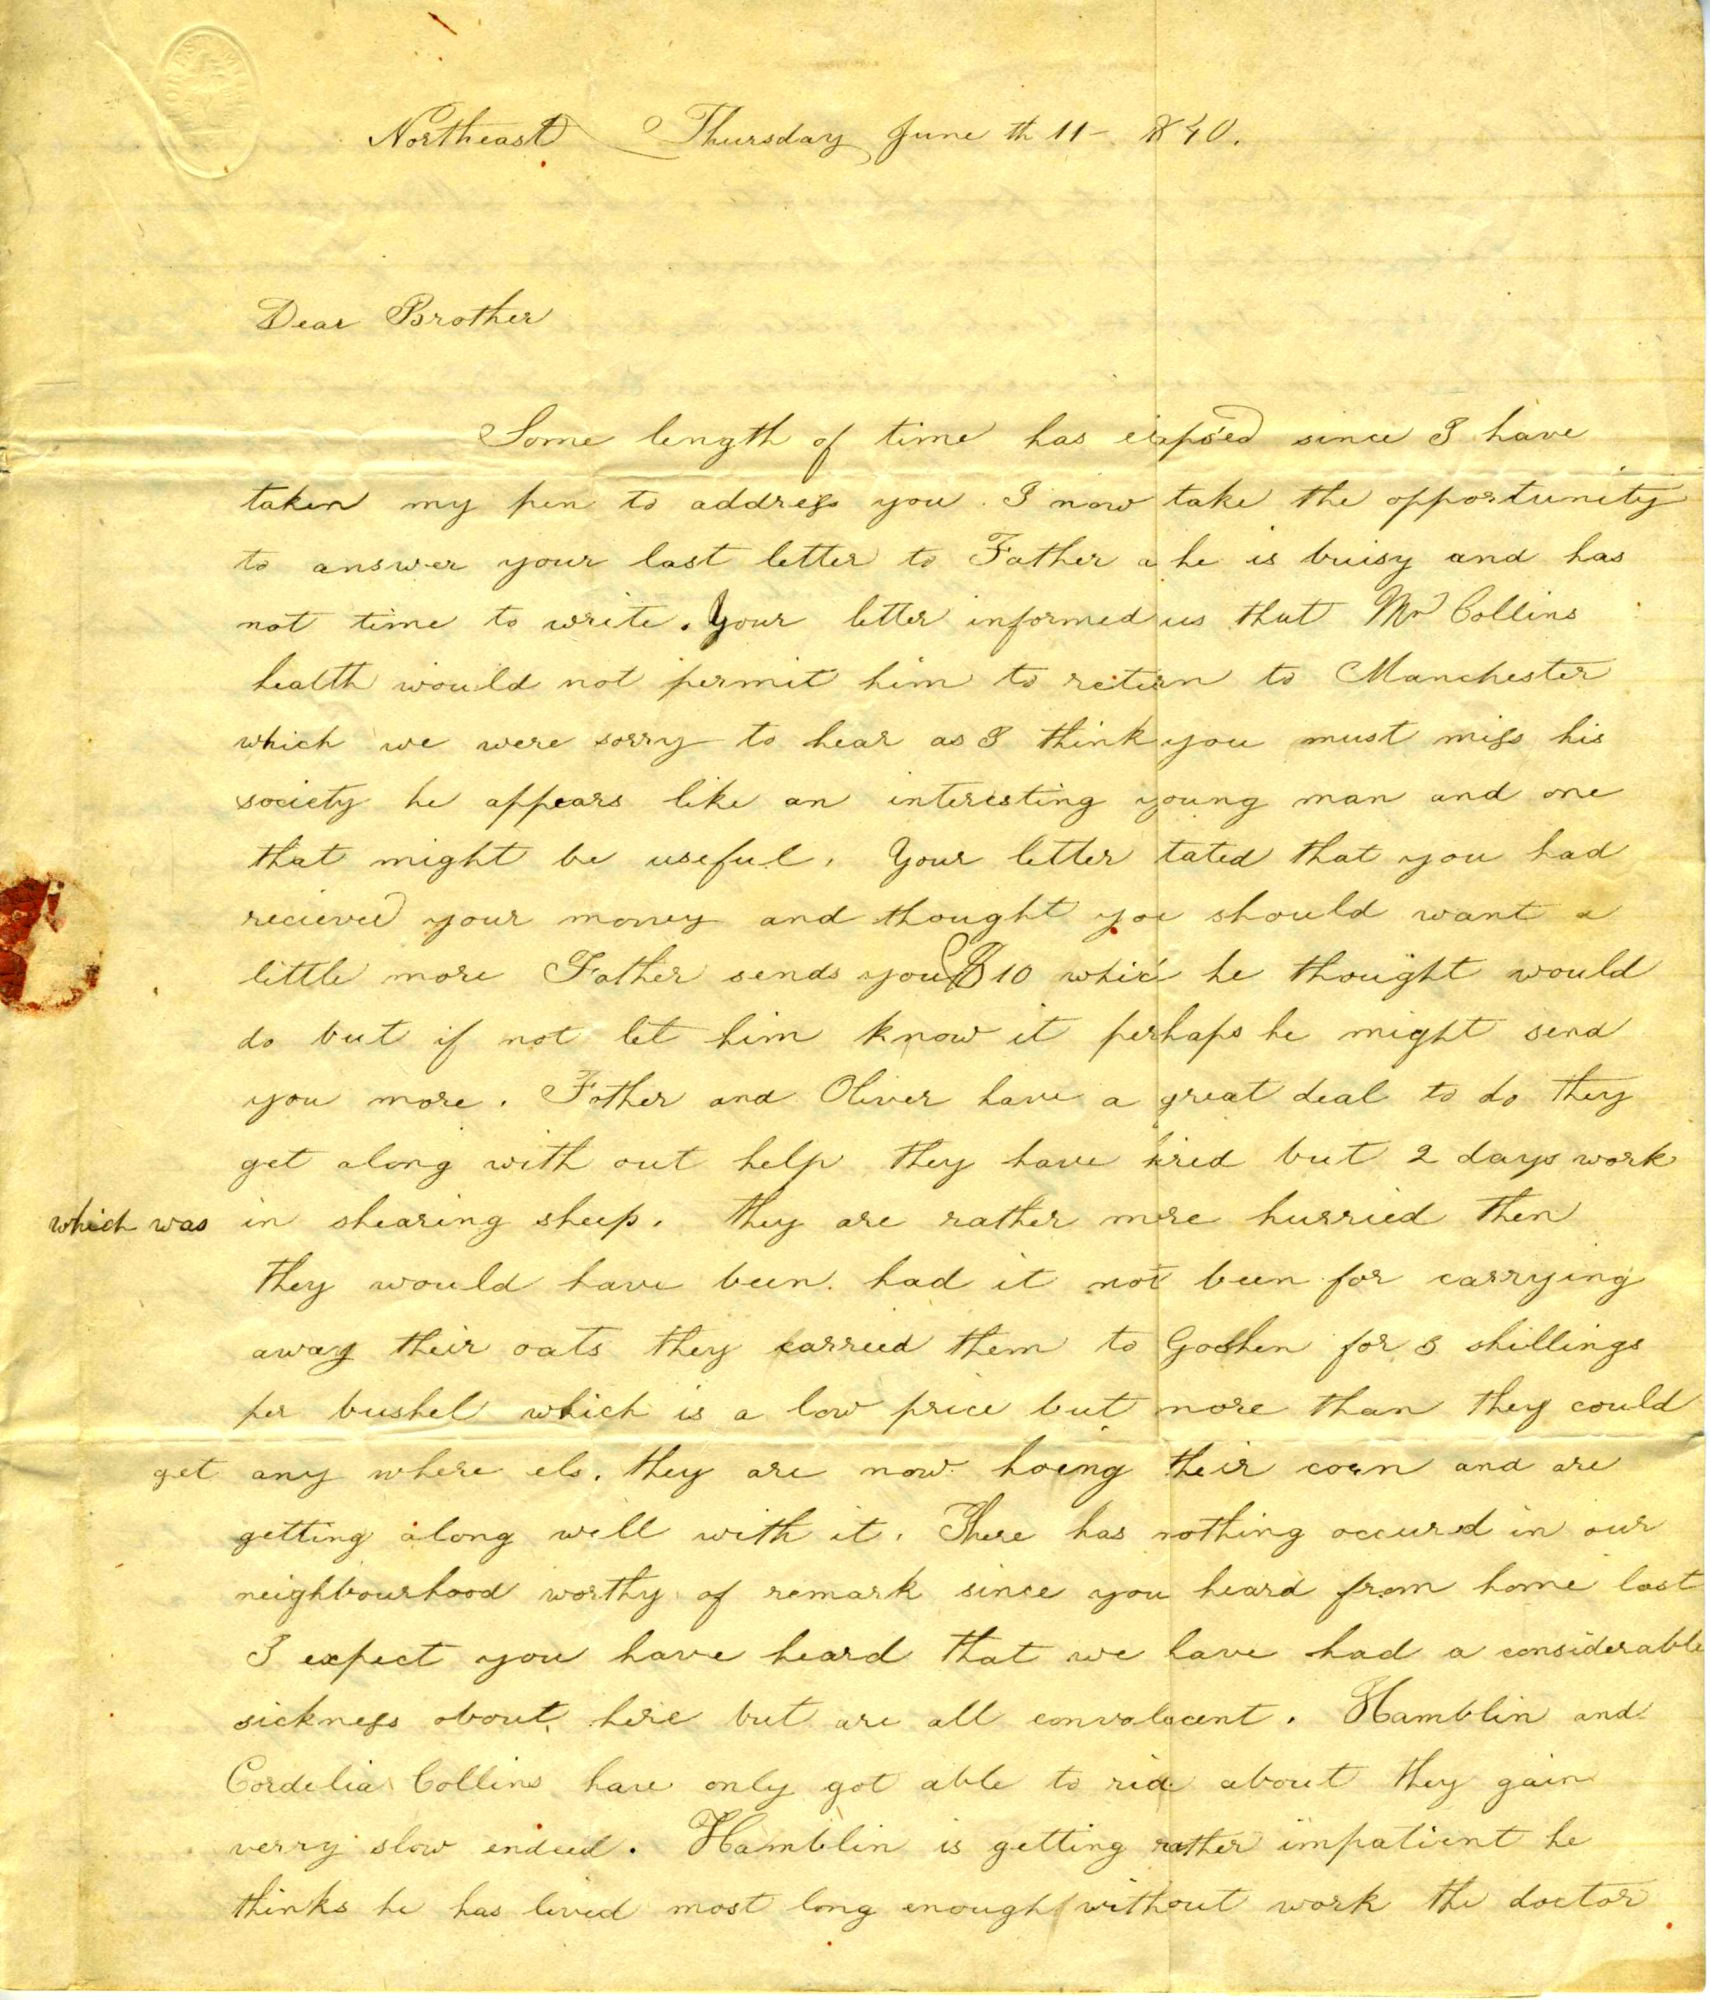 Northeast Thursday June th 11 - 1840.
Dear Brother
Some length of time has elapsed since I have
taken my pen to address you. I now take the opportunity
to answer your last letter to Father a he is buisy and has
not time to write. Your letter informed us that Mr Collins
health would not permit him to return to Manchester
which we were sorry to hear as I think you must miss his
society he appears like an interesting young man and one
that might be useful. Your letter tated that you had
recieved your money and thought you should want a
little more Father sends you $10 which he thought would
do but if not let him know it perhaps he might send
you more. Father and Oliver have a great deal to do they
get along with out help they have hired but 2 days work
which was in shearing sheep. they are rather more hurried then
they would have been had it not been for carrying
away their oats they carreed them to Goshen for 3 shillings
per bushel which is a low price but more than they could
get any where els. they are now hoeing their corn and are
getting along well with it. There has nothing occured in our
neighbourhood worthy of remark since you heard from home last
I expect you have heard that we have had a considerable
sickness about here but are all convalecent. Hamblin and
Cordelia Collins have only got able to ride about they gain
verry slow endeed. Hamblin is getting rather impatient he
thinks he has lived most long enough without work the doctor